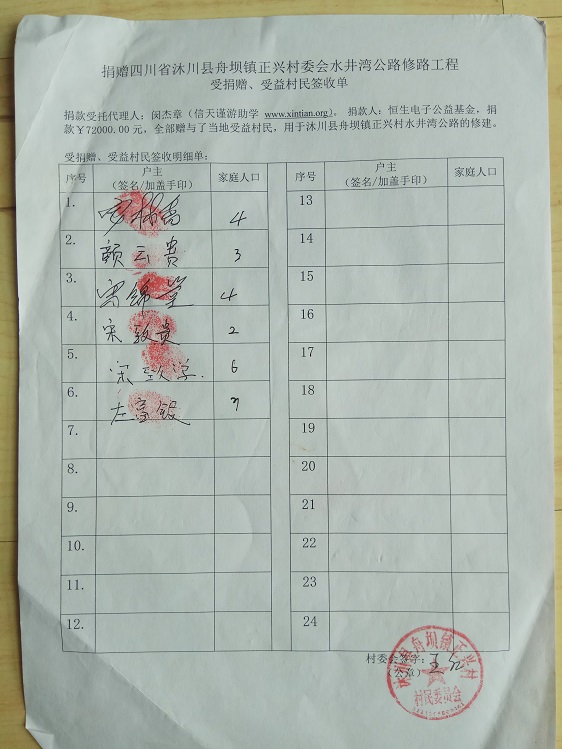 捐赠四川省沐川县舟坝镇正兴村委会水井湾公路修路工程
受捐赠、受益村民签收单
捐款受托代理人：闵杰章（信天谨游助学 www.xintian.org)， 捐款人：恒生电子公益基金，捐
款￥72000.00 元，全部赠与了当地受益村民，用于沐川县舟坝镇正兴村水井湾公路的修建。
受捐赠、受益村民签收明细单：
序号 户主 家庭人口 序号 户主 家庭人口
（签名/加盖手印） （签名/加盖手印）
1. 4 13
2. 赖云贵 3 14
3. 4 15
4. 宋致贵 2 16
5. 宋致学 6 17
6. 左富银 18
7. 19
8. 20
9. 21
10. 22
11. 23
12. 24
村委会签字：王
（公章）
沐川县舟坝镇正兴村
村民委员会